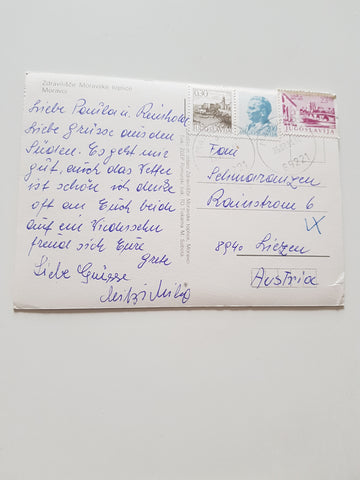 Zdravilišče Moravske toplice
Moravci
Liebe Paula u. Reinhold
Liebe Grüsse aus dem
Süden. Es geht mir
gut, auch das Wetter
ist schön, ich denke
oft an Euch beide
auf ein Wiedersehn
freut sich Eure
Grete
Liebe Grüsse
Mitzi
0.30
JUGOSLAVIJA
JUGOSLAVIJA
JUGOSLAVIJA
69221
Fam
Rainstrom 6
8940 Liezen
Austria